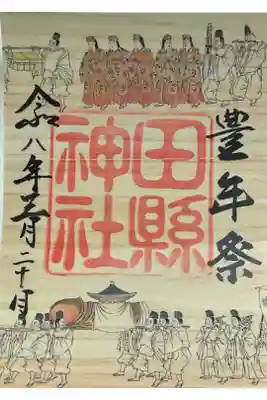 豐年祭
田縣
神社
令和八年三月二十日